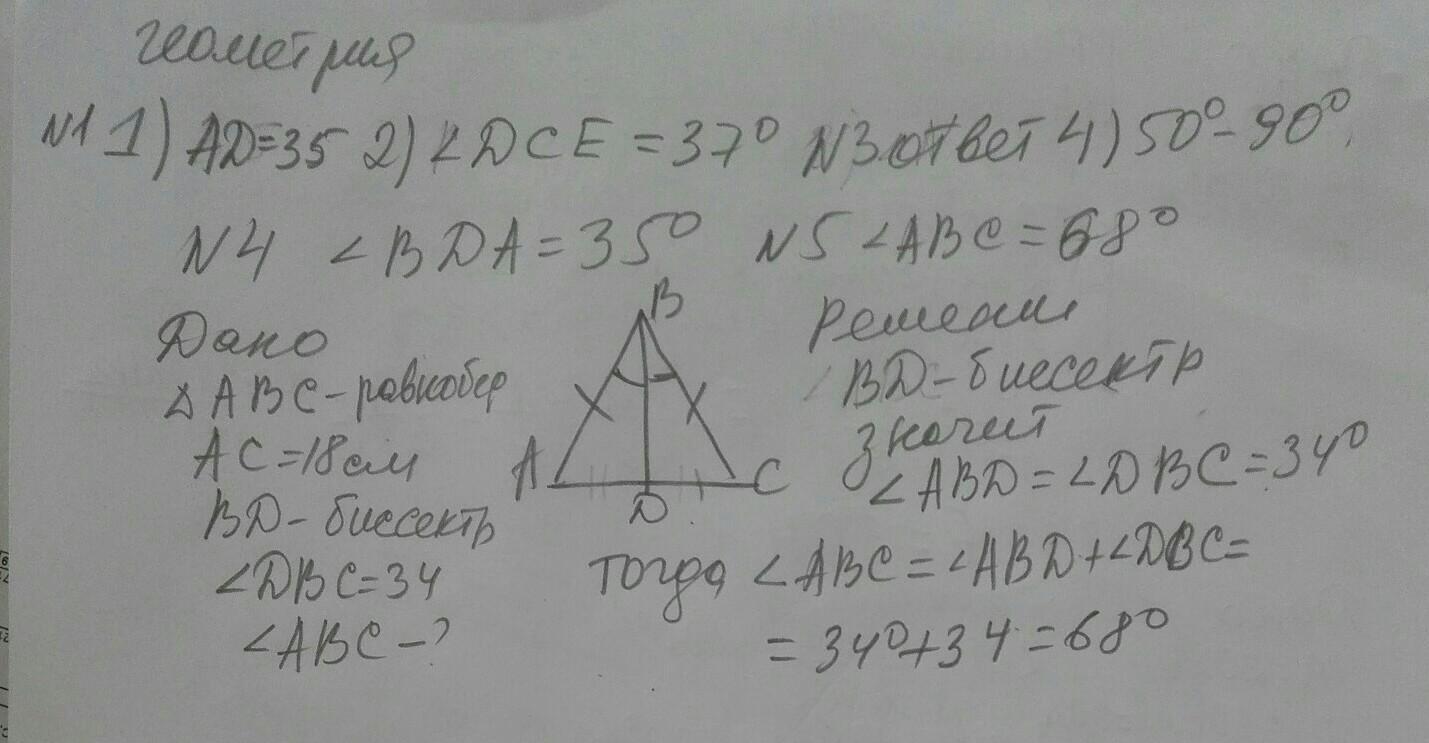 геометрия
N1 1) AD=35 2) ∠DCE = 37° N3 ответ 4) 50° - 90°.
N4 ∠BDA = 35° N5 ∠ABC = 68°
Дано
△ABC - равнобер
AC = 18 см
BD - биссектр
∠DBC = 34
∠ABC - ?
B
A
D
C
Решени
BD - биссектр
значит
∠ABD = ∠DBC = 34°
тогда ∠ABC = ∠ABD + ∠DBC =
= 34° + 34 = 68°